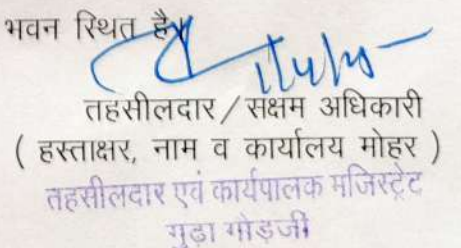 भवन स्थित है।
तहसीलदार / सक्षम अधिकारी
( हस्ताक्षर, नाम व कार्यालय मोहर )
तहसीलदार एवं कार्यपालक मजिस्ट्रेट
गुढ़ा गोड़जी